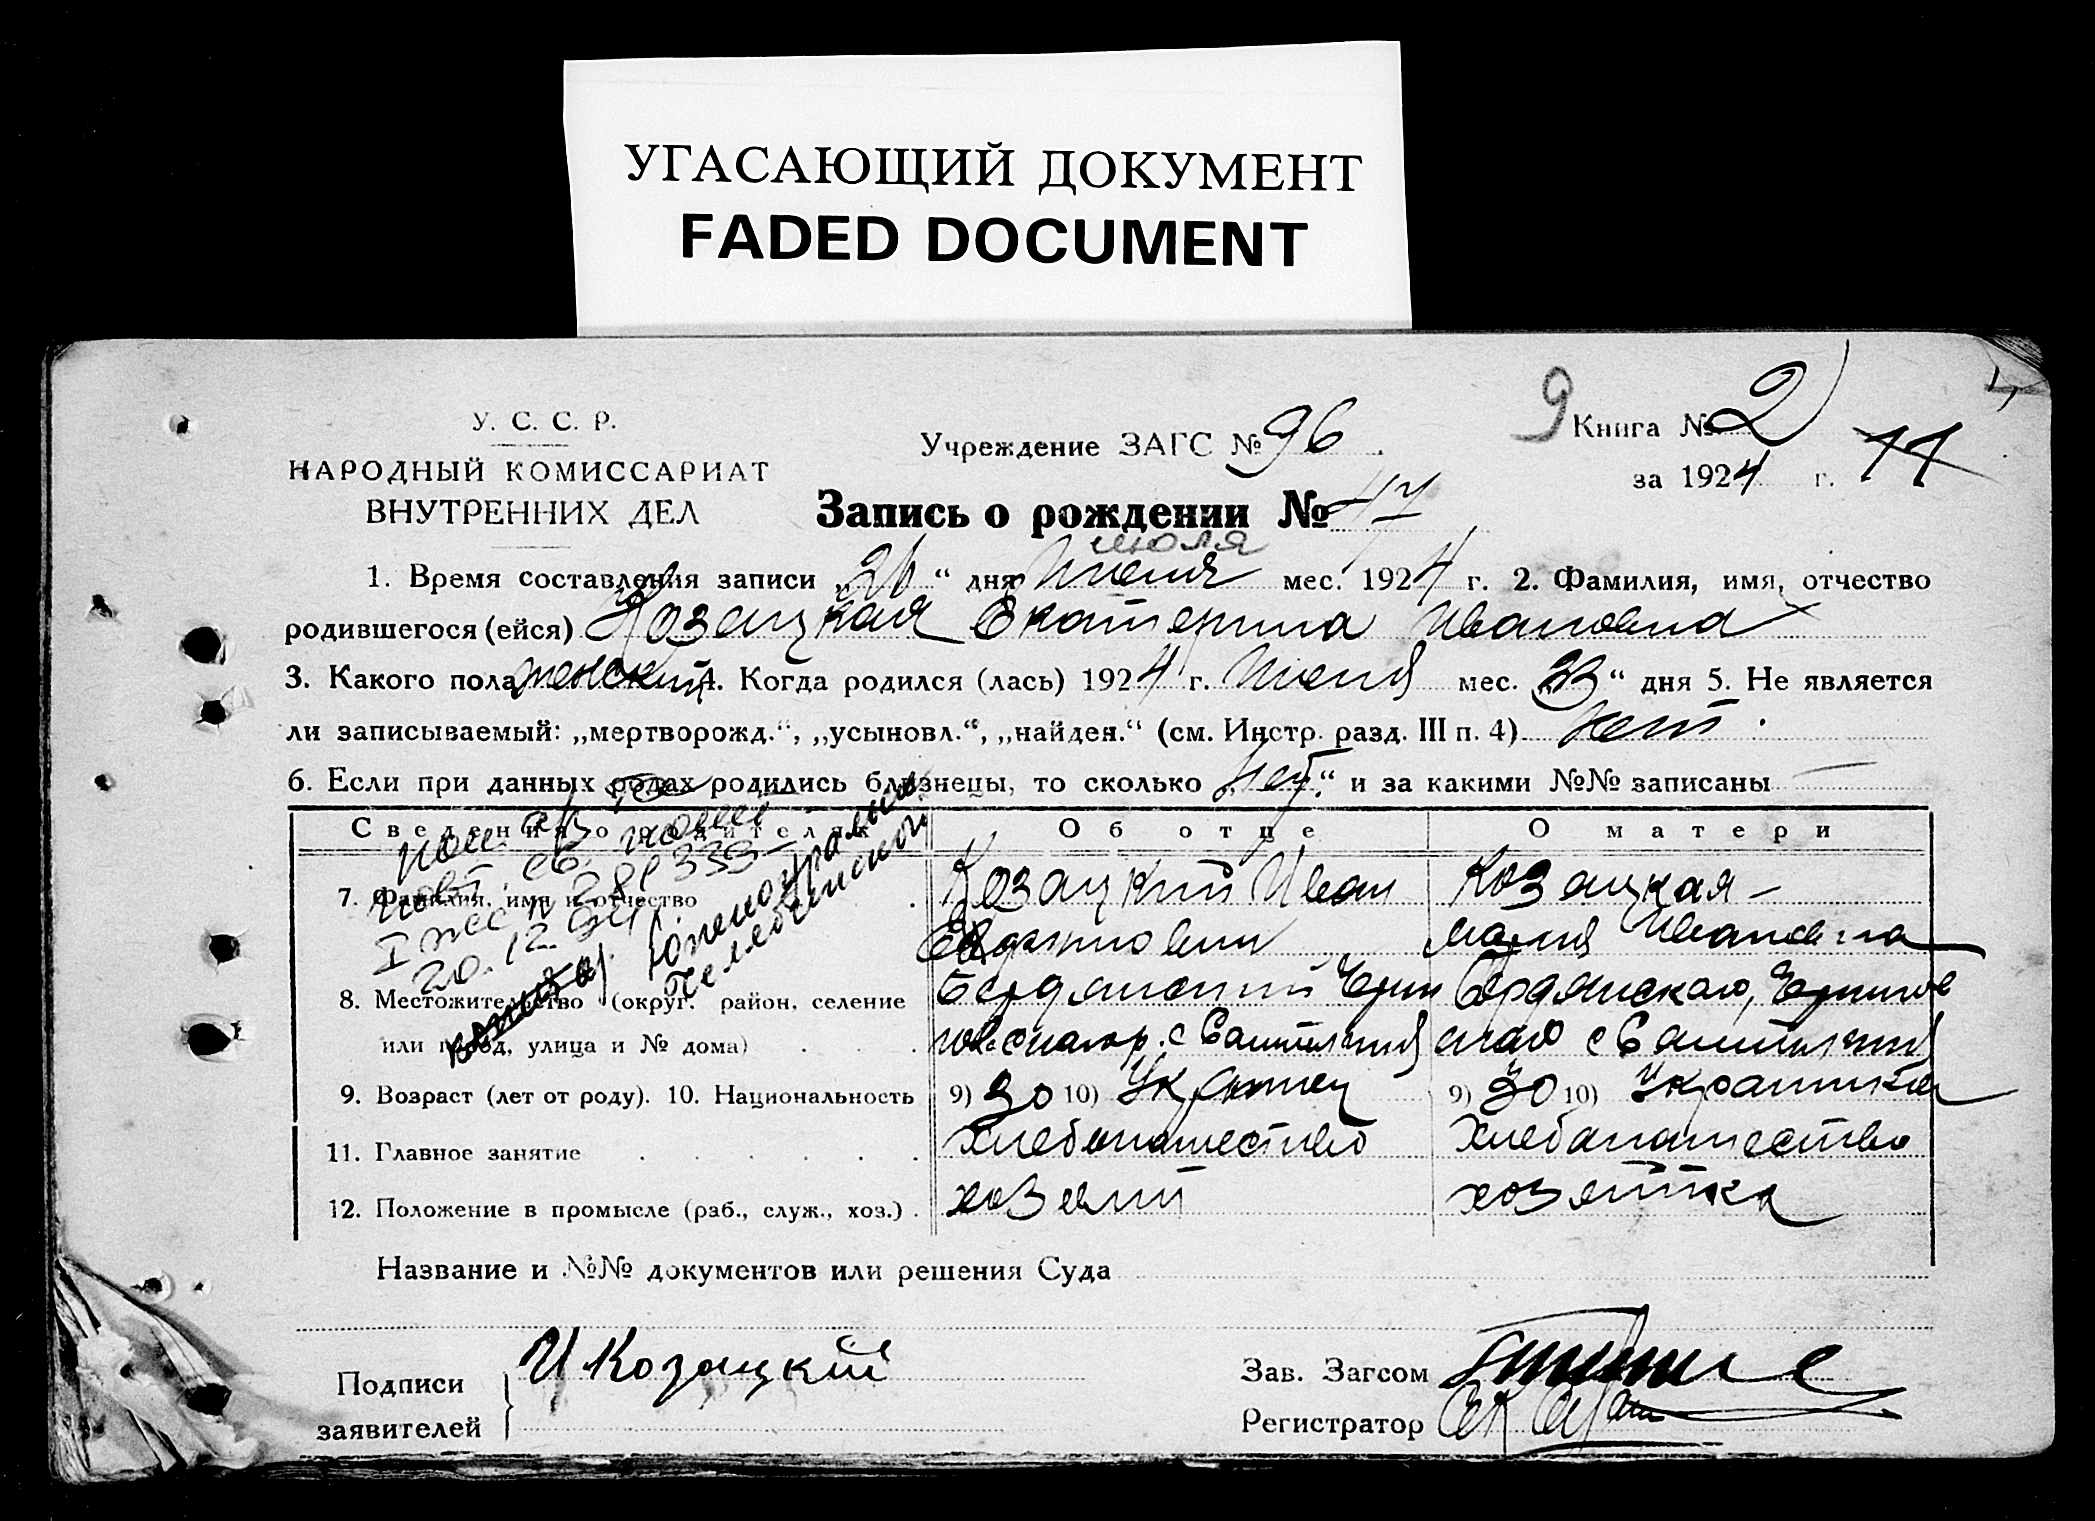 УГАСАЮЩИЙ ДОКУМЕНТ
FADED DOCUMENT
У. С. С. Р.
НАРОДНЫЙ КОМИССАРИАТ
ВНУТРЕННИХ ДЕЛ
Учреждение ЗАГС № 96
9 Книга № 2
за 1924 г. 11
Запись о рождении № 47
июля
1. Время составления записи „26“ дня Июня мес. 1924 г. 2. Фамилия, имя, отчество
родившегося (ейся) Козацкая Екатерина Ивановна
3. Какого пола женский 4. Когда родился (лась) 1924 г. Июня мес. „23“ дня 5. Не является
ли записываемый: „мертворожд.“, „усыновл.“, „найден.“ (см. Инстр. разд. III п. 4) нет
6. Если при данных родах родились близнецы, то сколько „нет“ и за какими №№ записаны —
Сведения о родителях Об отце О матери
7. Фамилия, имя и отчество
Козацкий Иван
Козацкая
Мария Ивановна
20.12.
8. Местожительство (округ, район, селение
или город, улица и № дома)
Бердянский
Бердянского,
9. Возраст (лет от роду). 10. Национальность 9) 30 10) Украинец 9) 30 10) Украинка
11. Главное занятие Хлебопашество Хлебопашество
12. Положение в промысле (раб., служ., хоз.) хозяин хозяйка
Название и №№ документов или решения Суда
Подписи
заявителей
И Козацкий
Зав. Загсом
Регистратор